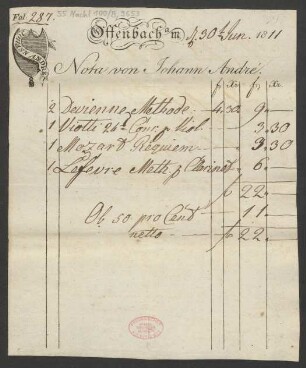 Fol. 287.
Offenbach a/m 30t Jun. 1811
Nota von Johann André.
f. Xr. f. Xr.
2 Devienne Methode 4.30 9 -
1 Viotti 24s Conc. p Viol. 3.30
1 Mozard Requiem 9.30
1 Lefevre Meth p Clarinet 6 -
f 22 -
Ab 50 pro Cent 11 -
netto f 22 -